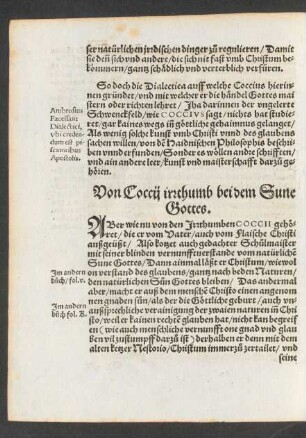 ser natürlichen jrdischen dinger zů regulieren / Damit
sie deñ sich vnd andre / die sich nit fast vmb Christum be-
kömmern / gantz schådlich vnd verterblich verfüren.
So doch die Dialectica auff welche Coccius hierin-
nen gründet / vnd mit welcher er die håndel Gottes mai
stern oder richten lehret / Jha darinnen der vngelerte
Schwenckfeld / wie COCCIVS sagt / nichts hat studie-
ret / gar kaines wegs iñ götrliche gehaimnus gelanget /
Als wenig solche kunst vmb Christi vnnd des glaubens
sachen willen / von dē Haidnischen Philosophis beschi-
ben vnnd erfunden / Sonder es wöllen andre schifften /
vnd ain andere leer / kunst vnd maisterschafft darzů ge-
hören.
Ambrosius
Facessant
Dialectici,
vbi creden-
dum est pi-
scatoribus
Apostolis.
Von Coccij irrthumb bei dem Sune
Gottes.
ABer wie nu von den Jrrthumben COCCII gehö-
ret / die er vom Vater / auch vom Flaische Christi
außgeüßt / Also kotzet auch gedachter Schůlmaister
mit seiner blinden vernunfft vnuerstande vom natürliche
Sune Gottes / Dann ainmal låßt er Christum / wiewol
on verstand des glaubens / gantz nach beden Naturen /
den natürlichen Sůn Gottes bleiben / Das andermal
aber / macht er auß dem mensche Christo einen angenom
nen gnaden sůn / als der die Götliche geburt / auch vn-
außsprechliche verainigung der zwaien naturen in Chri
sto / weil er kainen rechtē glauben hat / nicht kan begreif
en (wie auch menschliche vernunfft one gnad vnd glau
ben vil zustumpff darzů ist) derhalben er denn mit dem
alten ketzer Nestorio / Christum immerzů zertailet / vnd
seine
Im andern
bůch / fol. v.
Im andern
bůch fol. 8.